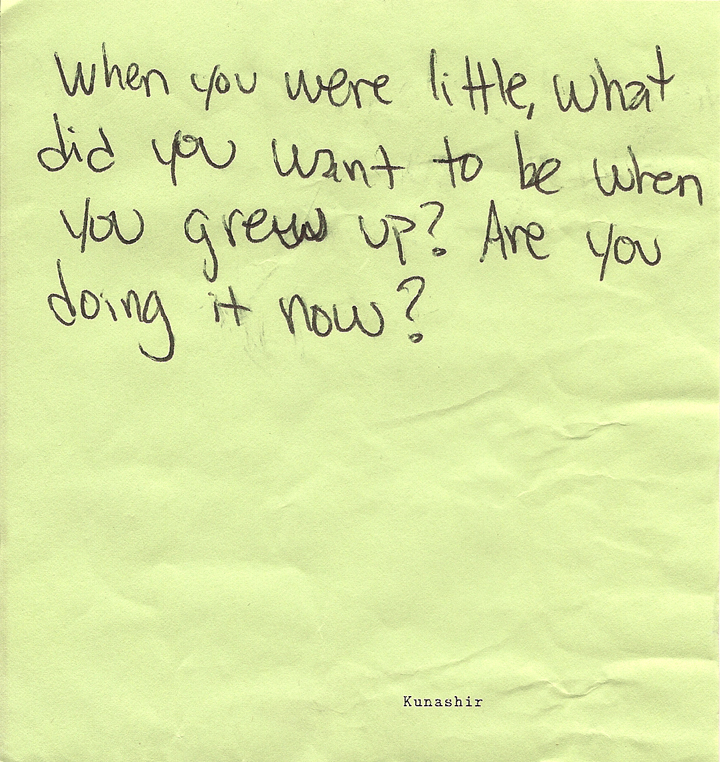 When you were little, what
did you want to be when
you grew up? Are you
doing it now?
Kunashir